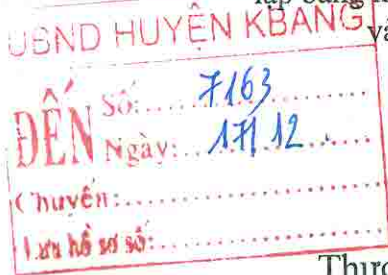 lập bảng
UBND HUYỆN KBANG
và
ĐẾN
Số:.....7163.....
Ngày:.....17/12.....
Chuyển:.....
Lưu hồ sơ số:.....
Thực